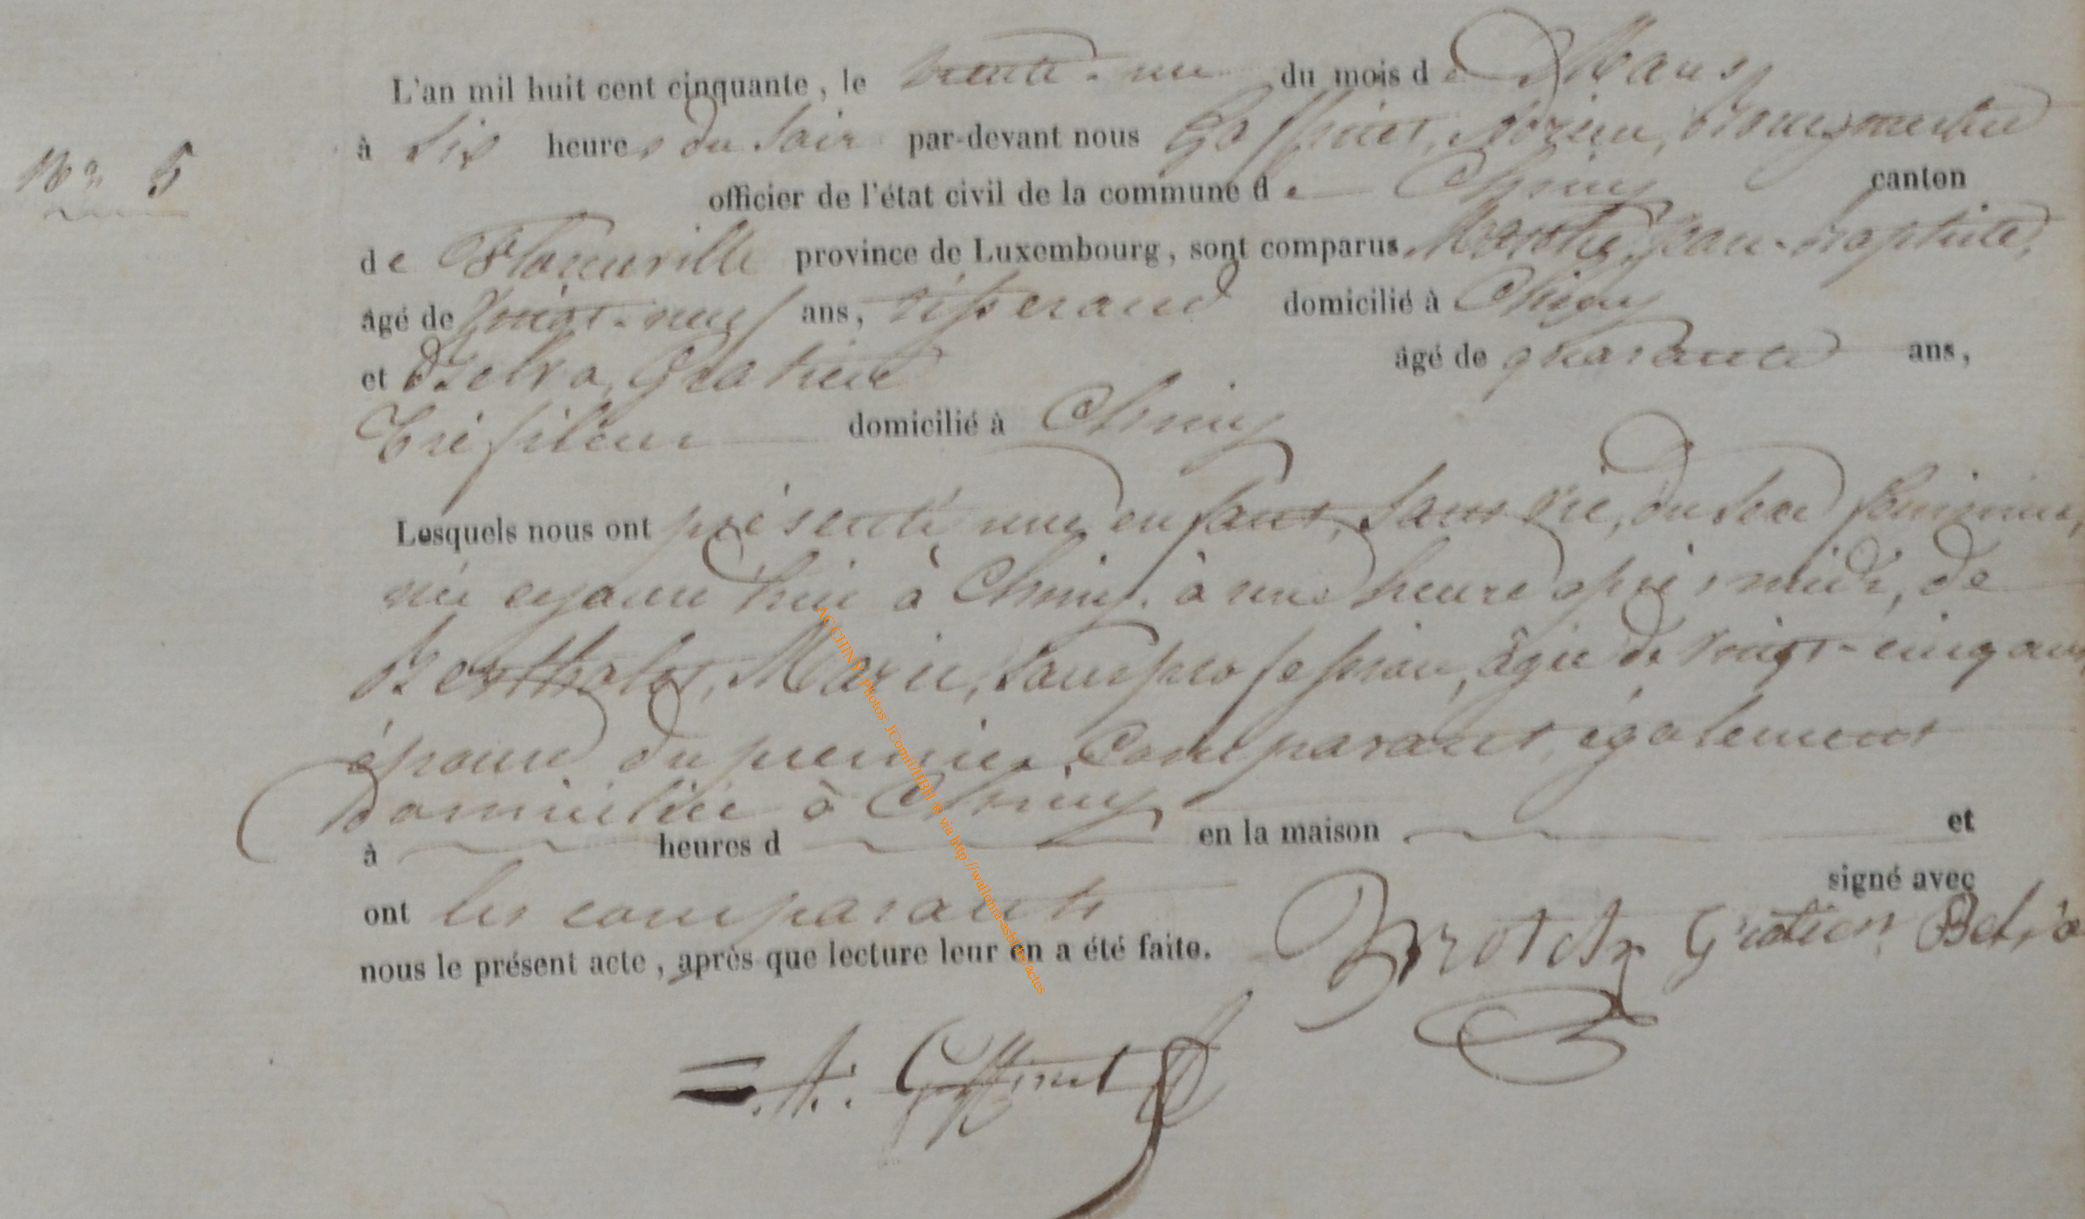 L'an mil huit cent cinquante, le trente-un du mois de Mars
à six heures du soir par-devant nous Goffinet, Adrien, Bourgmestre
N° 5
officier de l'état civil de la commune de Chiny canton
de Florenville province de Luxembourg, sont comparus Jean-Baptiste,
âgé de vingt-neuf ans, tisserand domicilié à Chiny
et Delva, Gratien âgé de quarante ans,
Tréfileur domicilié à Chiny
Lesquels nous ont présenté une enfant, sans vie, du sexe féminin,
née cejourd'hui à Chiny, à une heure après midi, de
Bertholet, Marie, sans profession, âgée de vingt-cinq ans
épouse du premier Comparant, également
domiciliée à Chiny
à heures d en la maison et
ont les comparants signé avec
nous le présent acte, après que lecture leur en a été faite.
Gratien Delva
A. Goffinet